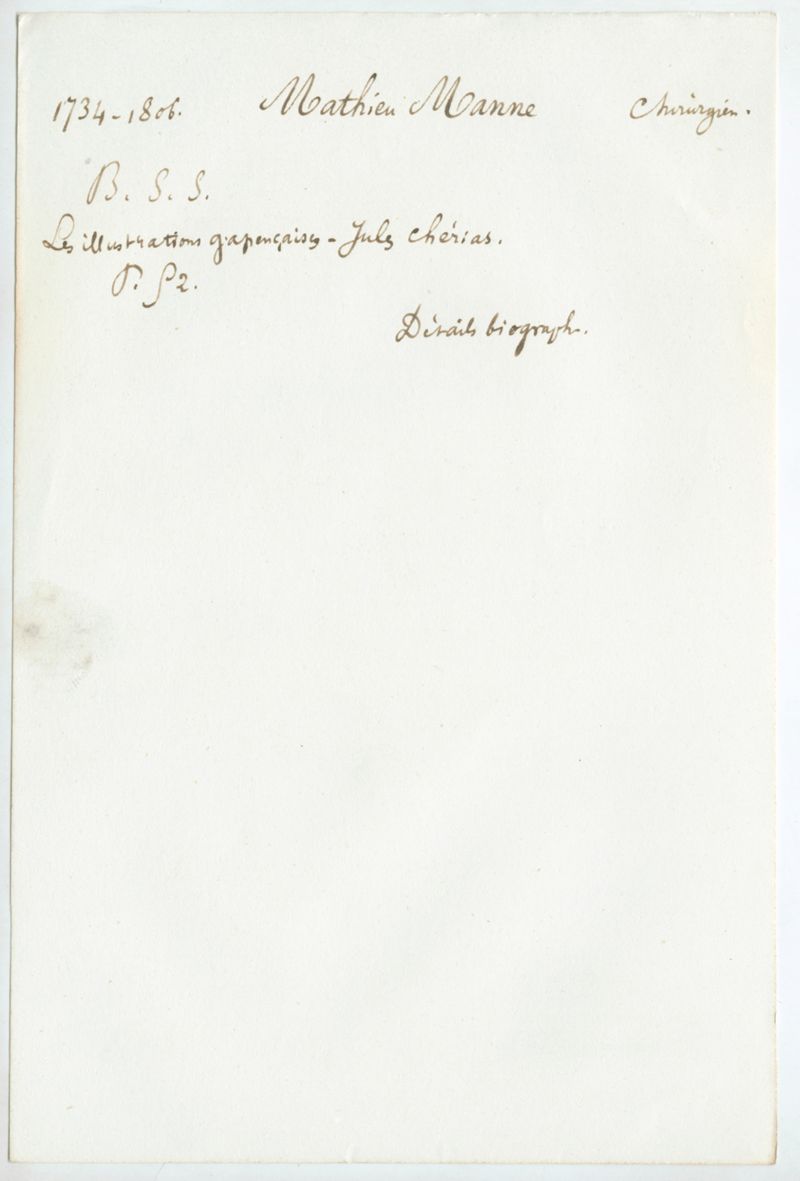 1734-1806. Mathieu Manne Chirurgien.
B. S. S.
Les illustrations gapençaises - Jules Chérias.
P. 52.
Détails biograph.